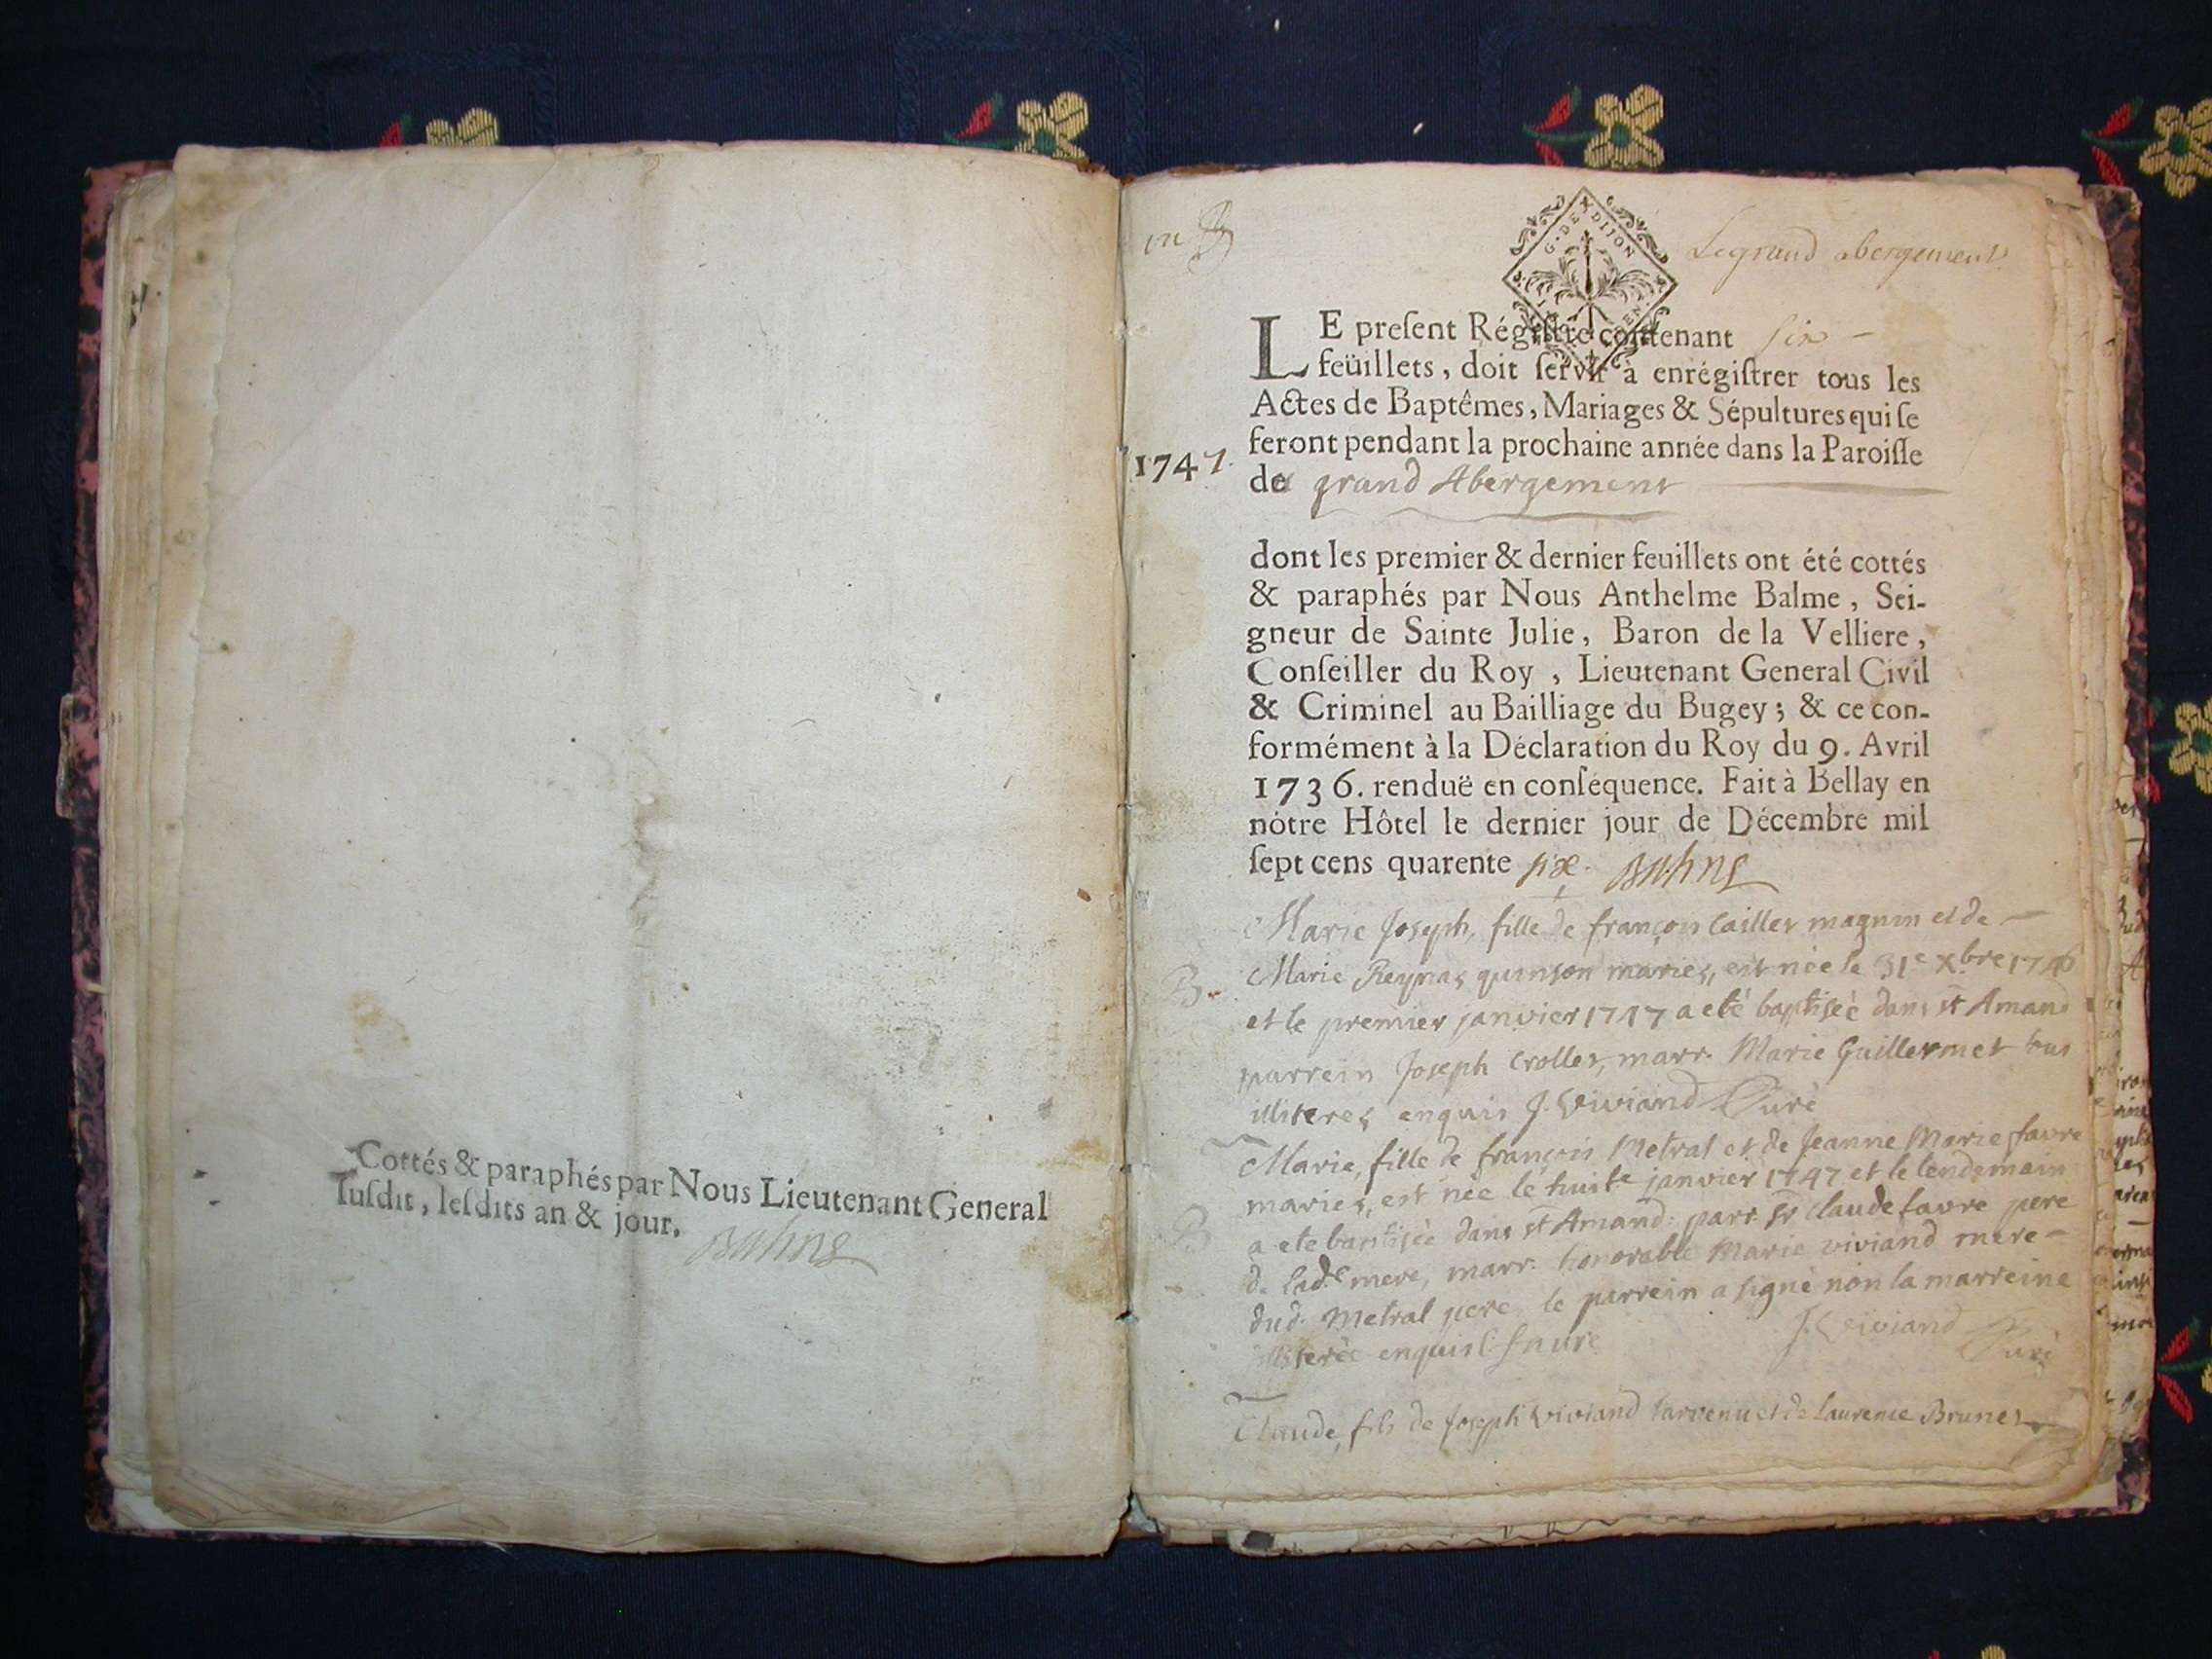 Cottés & paraphés par Nous Lieutenant General
ſuſdit, leſdits an & jour.
Balme
G. DE DIJON
Legrand abergement
LE preſent Régiſtre contenant six
feüillets, doit ſervir à enrégiſtrer tous les
Actes de Baptêmes, Mariages & Sépultures qui ſe
feront pendant la prochaine année dans la Paroiſſe
1747.
de grand Abergement
dont les premier & dernier feuillets ont été cottés
& paraphés par Nous Anthelme Balme, Sei-
gneur de Sainte Julie, Baron de la Velliere,
Conſeiller du Roy, Lieutenant General Civil
& Criminel au Bailliage du Bugey; & ce con-
formément à la Déclaration du Roy du 9. Avril
1736. renduë en conſéquence. Fait à Bellay en
nôtre Hôtel le dernier jour de Décembre mil
ſept cens quarente six. Balme
Marie Joseph, fille de françois Caillet magnin et de
B. Marie Reynaz quinson mariez, est née le 31e Xbre 1746
et le premier janvier 1747 a eté baptisée dans st Amand
parrein Joseph Crollet, marr. Marie Guillermet tous
illiterez enquis J. Viviand Curé
Marie, fille de françois Metral et de Jeanne Marie favre
mariez, est née le huite janvier 1747 et le lendemain
B a eté baptisée dans st Amand: parr. sr Claude favre pere
de lade mere, marr. honorable Marie viviand mere
dud. Metral pere, le parrein a signé non la marreine
illiterée enquis C. favre J. Viviand Curé
Claude, fils de Joseph Viviand et de Laurence Brunet